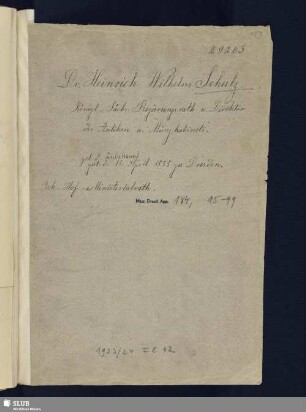 Dr. Heinrich Wilhelm Schulz
Königl. Sächs. Regierungsrath u. Direktor
der Antiken u. Münzkabinets.
gest. d. 15. April 1855 zu Dresden.
Geh. Hof- u. Ministerialrath.
Msc. Dresd. App. 184, 95-99
1933/24
SLUB